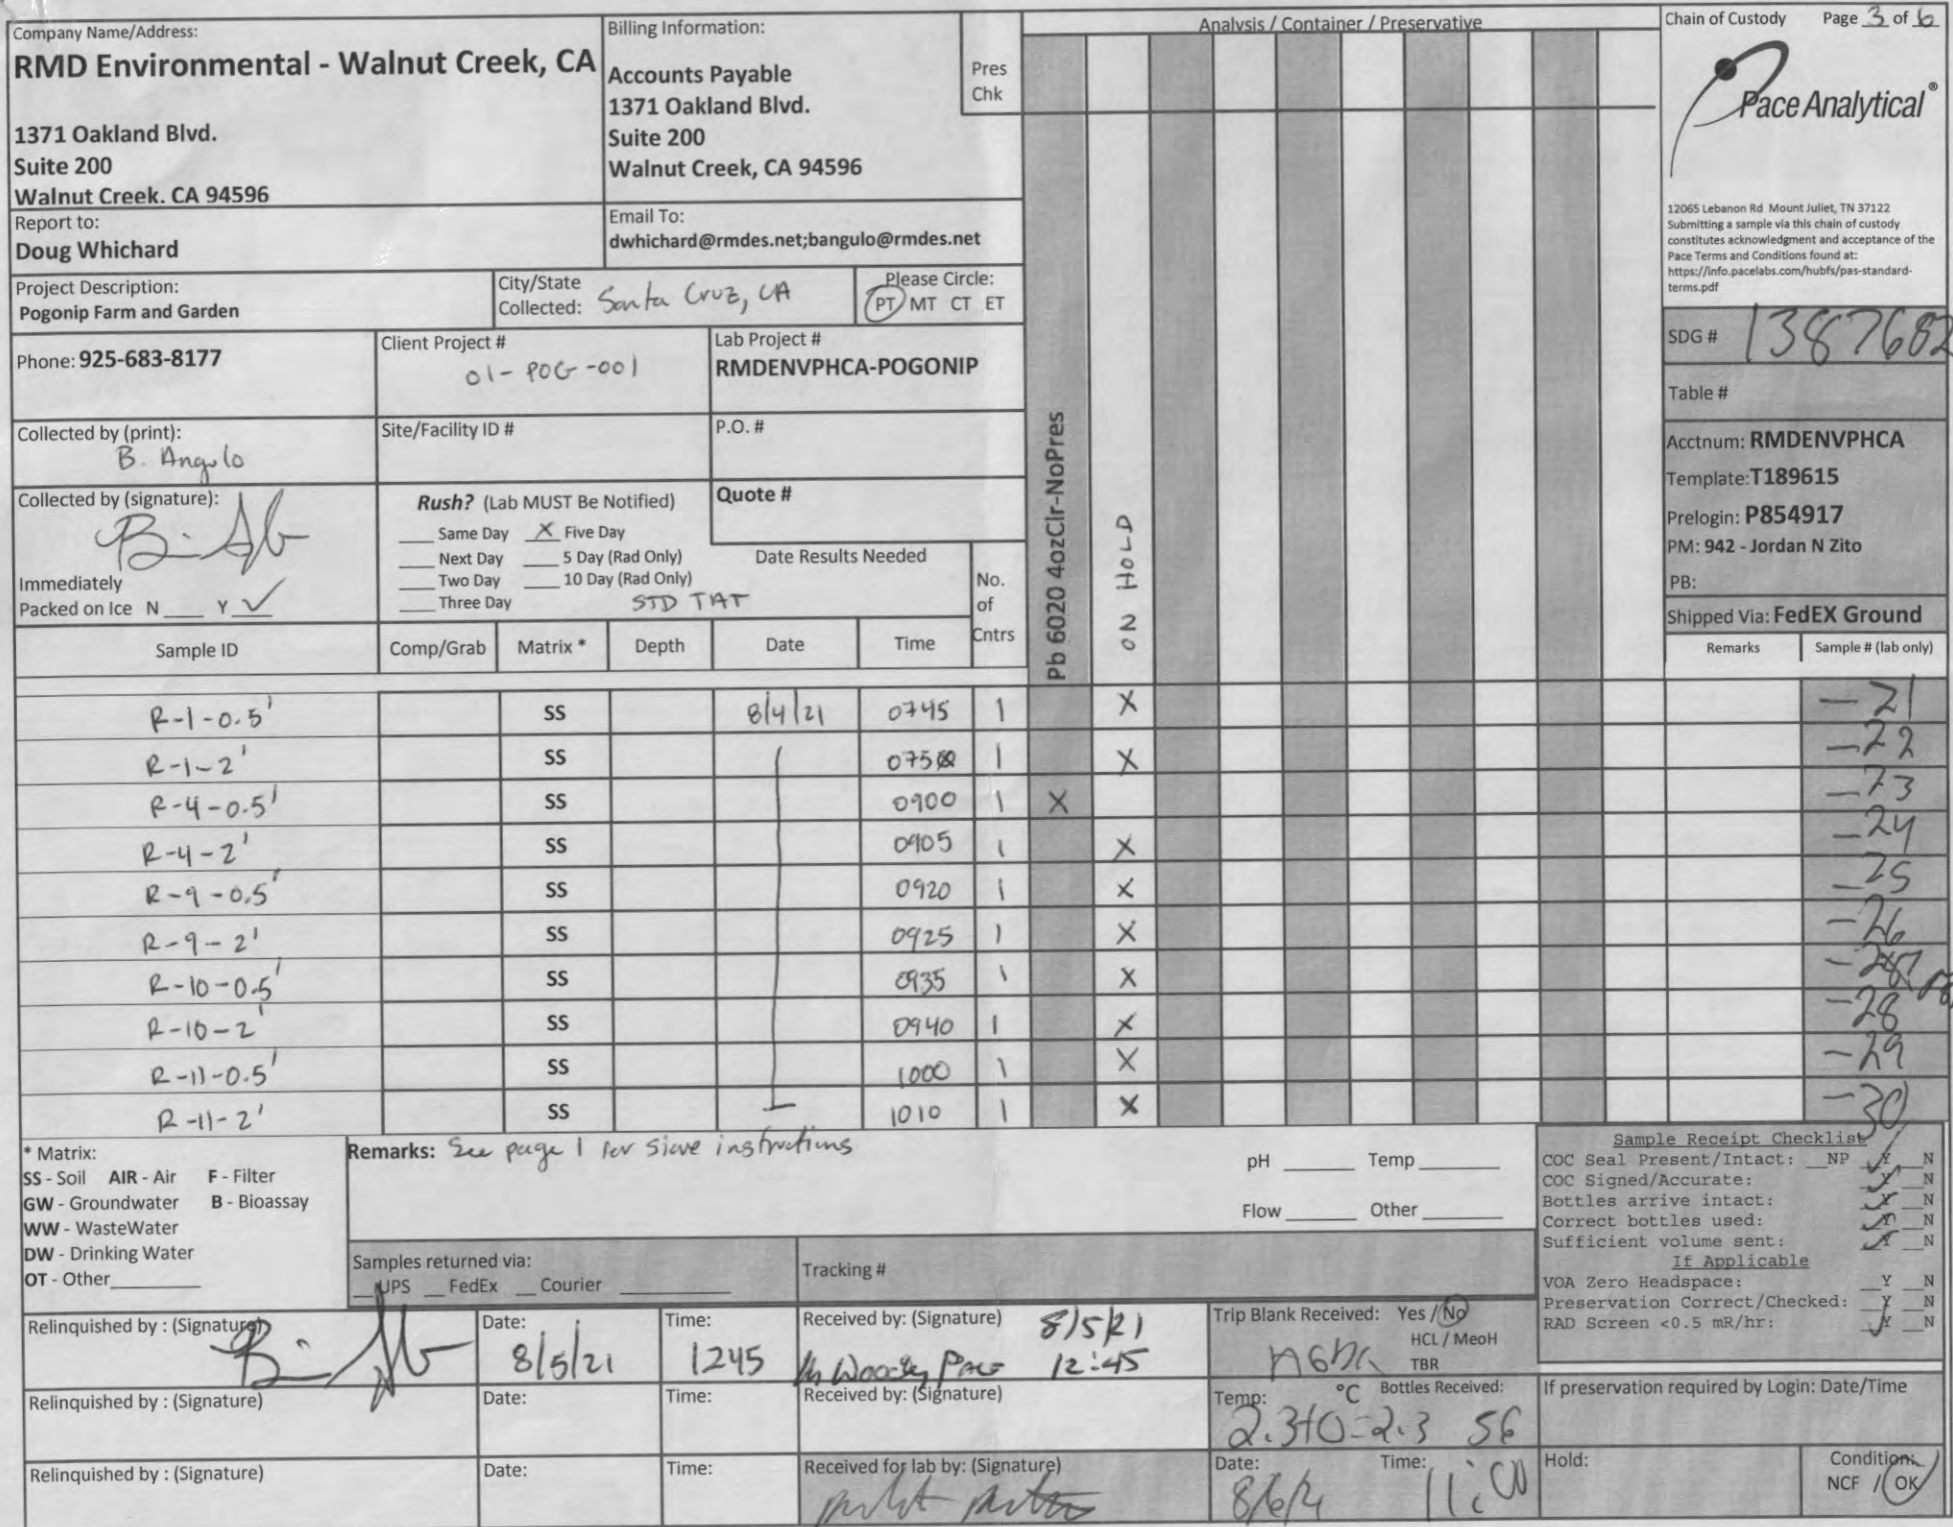 Company Name/Address:
RMD Environmental - Walnut Creek, CA
1371 Oakland Blvd.
Suite 200
Walnut Creek. CA 94596
Billing Information:
Accounts Payable
1371 Oakland Blvd.
Suite 200
Walnut Creek, CA 94596
Pres
Chk
Analysis / Container / Preservative
Chain of Custody Page 3 of 6
Pace Analytical ®
12065 Lebanon Rd Mount Juliet, TN 37122
Submitting a sample via this chain of custody
constitutes acknowledgment and acceptance of the
Pace Terms and Conditions found at:
https://info.pacelabs.com/hubfs/pas-standard-
terms.pdf
Report to:
Doug Whichard
Email To:
dwhichard@rmdes.net;bangulo@rmdes.net
Project Description:
Pogonip Farm and Garden
City/State
Collected: Santa Cruz, CA
Please Circle:
PT MT CT ET
SDG # 1387682
Table #
Acctnum: RMDENVPHCA
Template:T189615
Prelogin: P854917
PM: 942 - Jordan N Zito
PB:
Shipped Via: FedEX Ground
Phone: 925-683-8177
Client Project #
01-POG-001
Lab Project #
RMDENVPHCA-POGONIP
Collected by (print):
B. Angulo
Site/Facility ID #
P.O. #
Collected by (signature):
Immediately
Packed on Ice N ___ Y ✓
Rush? (Lab MUST Be Notified)
___ Same Day X Five Day
___ Next Day ___ 5 Day (Rad Only)
___ Two Day ___ 10 Day (Rad Only)
___ Three Day STD TAT
Quote #
Date Results Needed
No.
of
Cntrs
Pb 6020 4ozClr-NoPres
on HOLD
Sample ID Comp/Grab Matrix * Depth Date Time Remarks Sample # (lab only)
R-1-0.5' SS 8/4/21 0745 1 X -21
R-1-2' SS 0750 1 X -22
R-4-0.5' SS 0900 1 X -23
R-4-2' SS 0905 1 X -24
R-9-0.5' SS 0920 1 X -25
R-9-2' SS 0925 1 X -26
R-10-0.5' SS 0935 1 X
R-10-2' SS 0940 1 X -28
R-11-0.5' SS 1000 1 X -29
R-11-2' SS 1010 1 X -30
* Matrix:
SS - Soil AIR - Air F - Filter
GW - Groundwater B - Bioassay
WW - WasteWater
DW - Drinking Water
OT - Other
Remarks: See page 1 for sieve instructions
pH ___ Temp ___
Flow ___ Other ___
Samples returned via:
__ UPS __ FedEx __ Courier
Tracking #
Sample Receipt Checklist
COC Seal Present/Intact: __NP ✓Y __N
COC Signed/Accurate: ✓Y __N
Bottles arrive intact: ✓Y __N
Correct bottles used: ✓Y __N
Sufficient volume sent: ✓Y __N
If Applicable
VOA Zero Headspace: __Y __N
Preservation Correct/Checked: __Y __N
RAD Screen <0.5 mR/hr: ✓Y __N
Relinquished by : (Signature)
Date:
8/5/21
Time:
1245
Received by: (Signature)
8/5/21
Pace 12:45
Trip Blank Received: Yes / No
HCL / MeoH
TBR
Relinquished by : (Signature)
Date:
Time:
Received by: (Signature)
Temp: °C Bottles Received:
2.3+0=2.3 56
If preservation required by Login: Date/Time
Relinquished by : (Signature)
Date:
Time:
Received for lab by: (Signature)
Date:
8/6/21
Time:
11:00
Hold:
Condition:
NCF / OK